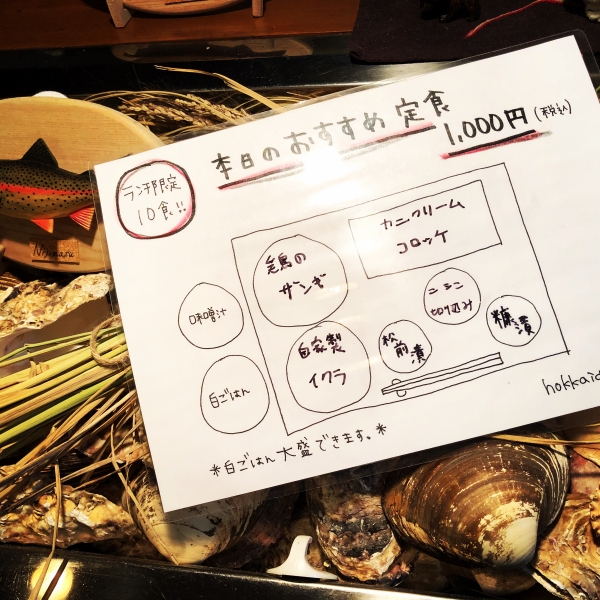 本日のおすすめ定食
1,000円(税込)
ランチ限定
10食!!
カニクリーム
コロッケ
ザンギ
ニシン
切り込み
糠漬
松前漬
自家製
イクラ
味噌汁
白ごはん
*白ごはん大盛できます。*
hokkaid